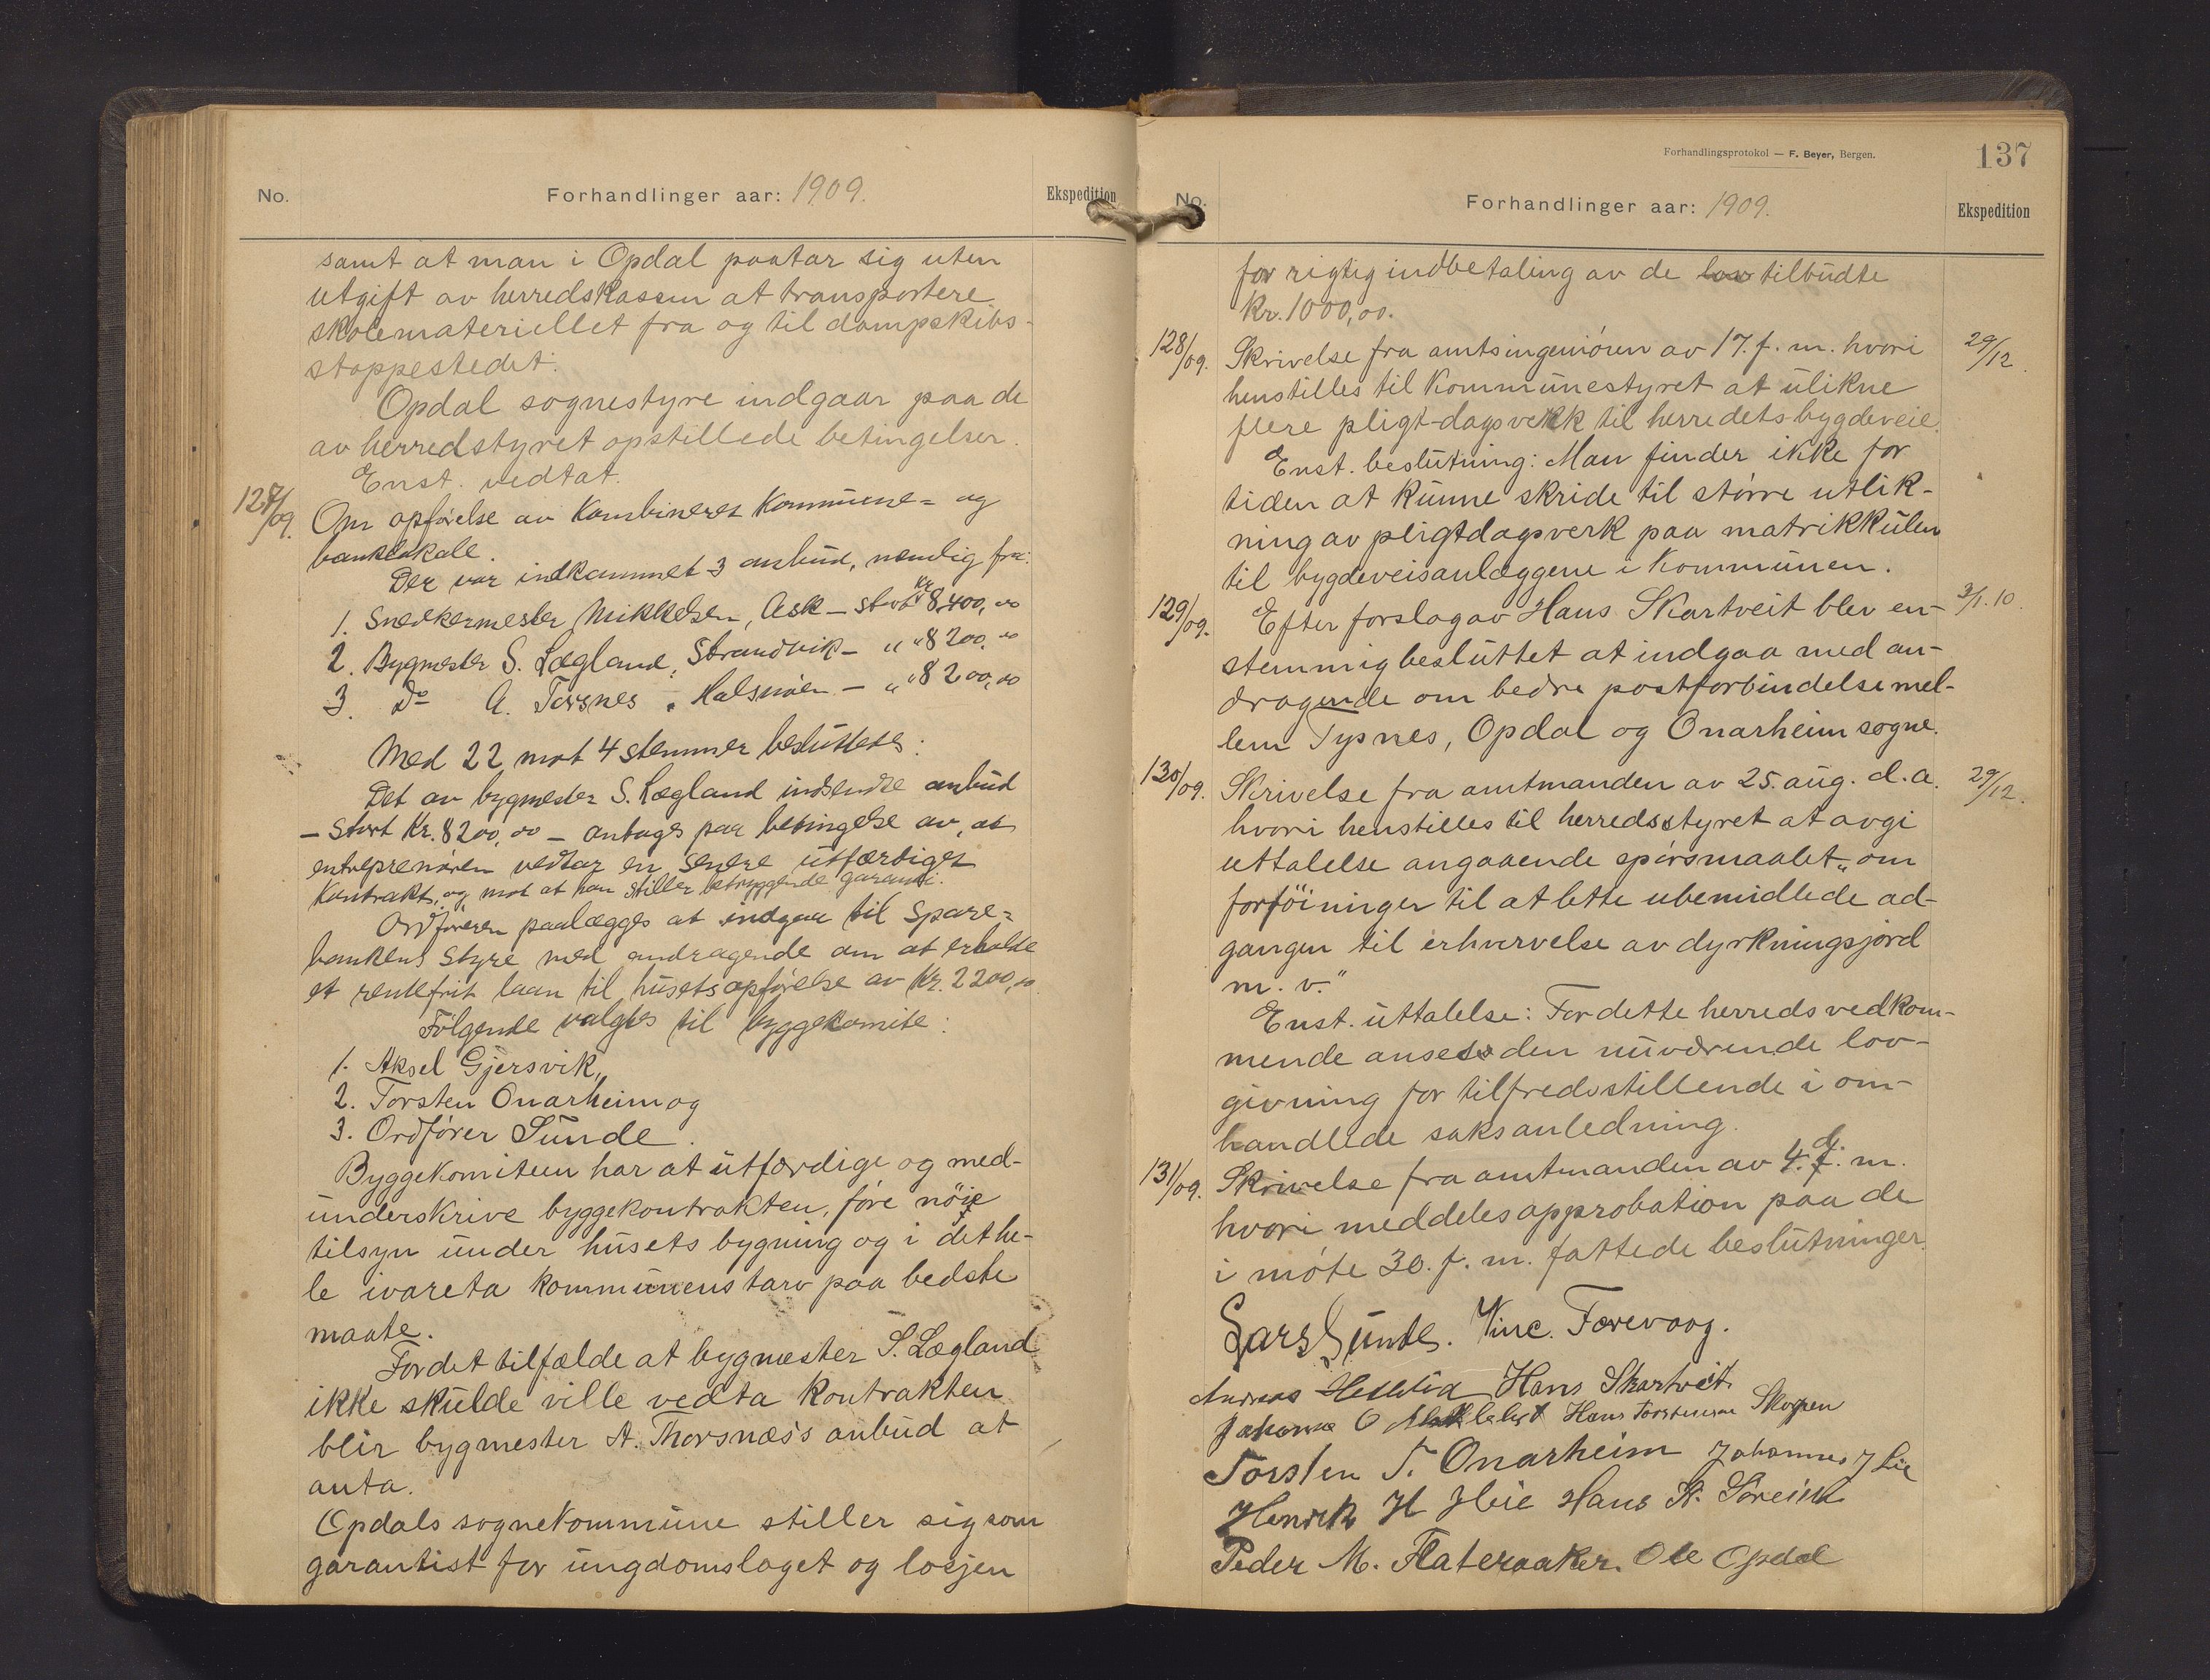 No.
Forhandlinger aar: 1909.
Ekspedition
samt at man i Opdal paatar sig uten
utgift av herredskassen at transportere
skolemateriellet fra og til dampskibs-
stoppestedet.
Opdal sognestyre indgaar paa de
av herredstyret opstillede betingelser.
Enst. vedtat.
127/09.
Om opförelse av kombineret kommune- og
banklokale.
Der var indkommet 3 anbud, nemlig fra:
1. Snedkermester Mikkelsen, Ask – stort kr 8,400,00
2. Bygmester S. Lægland, Strandvik – " " 8200,00
3. Do A. Torsnes, Halsnöen – " " 8200,00
Med 22 mot 4 stemmer besluttedes:
Det av bygmester S. Lægland indsendte anbud
– stort kr. 8200,00 – antages paa betingelse av, at
entreprenören vedtar en senere utfærdiget
kontrakt, og mot at han stiller betryggende garanti.
Ordföreren paalægges at indgaa til Spare-
bankens styre med andragende om at erholde
et rentefrit laan til husets opförelse av kr. 2200,00.
Fölgende valgtes til byggekomite:
1. Aksel Gjersvik,
2. Torsten Onarheim og
3. Ordförer Sunde.
Byggekomiteen har at utfærdige og med-
underskrive byggekontrakten, före nöie
tilsyn under husets bygning og i det he-
le ivareta kommunens tarv paa bedste
maate.
For det tilfælde at bygmester S. Lægland
ikke skulde ville vedta kontrakten
blir bygmester A. Thorsnæs's anbud at
anta.
Opdals sognekommune stiller sig som
garantist for ungdomslaget og losjen
Forhandlingsprotokol — F. Beyer, Bergen.
137
No.
Forhandlinger aar: 1909.
Ekspedition
for rigtig indbetaling av de tilbudte
kr. 1000,00.
128/09.
Skrivelse fra amtsingeniören av 17. f. m. hvori
29/12.
henstilles til kommunestyret at utlikne
flere pligt-dagsverk til herredets bygdeveie.
Enst. beslutning: Man finder ikke for
tiden at kunne skride til större utlik-
ning av pligtdagsverk paa matrikkulen
til bygdeveisanlæggene i kommunen.
129/09.
Efter forslag av Hans Skartveit blev en-
3/1.10.
stemmig besluttet at indgaa med an-
dragende om bedre postforbindelse mel-
lem Tysnes, Opdal og Onarheim sogne.
130/09.
Skrivelse fra amtmanden av 25. aug. d. a.
29/12.
hvori henstilles til herredsstyret at avgi
uttalelse angaaende spörsmaalet „om
forföininger til at lette ubemidlede ad-
gangen til erhvervelse av dyrkningsjord
m. v."
Enst. uttalelse: For dette herreds vedkom-
mende ansees den nuværende lov-
givning for tilfredsstillende i om-
handlede saksanledning.
131/09.
Skrivelse fra amtmanden av 4. d. m.
hvori meddeles approbation paa de
i möte 30. f. m. fattede beslutninger.
Lars Sunde. Vinc. Forevaag.
Hans Skartveit
Hans Torstensen Skogen
Torsten T. Onarheim Johannes J Lie
Henrik H Hleie Hans N.
Peder M. Flateraaker. Ole Opdal